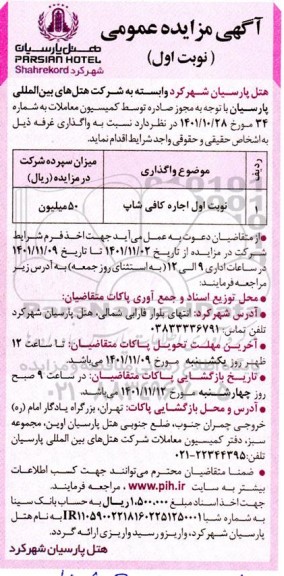 آگهی مزایده عمومی
( نوبت اول)
هتل پارسیان
PARSIAN HOTEL
Shahrekord
شهرکرد
هتل پارسیان شهرکرد وابسته به شرکت هتل‌های بین‌المللی
پارسیان با توجه به مجوز صادره توسط کمیسیون معاملات به شماره
۳۴ مورخ ۱۴۰۱/۱۰/۲۸ در نظر دارد نسبت به واگذاری غرفه ذیل
به اشخاص حقیقی و حقوقی واجد شرایط اقدام نماید.
ردیف
موضوع واگذاری
میزان سپرده شرکت
در مزایده (ریال)
نوبت اول اجاره کافی شاپ
۵۰ میلیون
از متقاضیان دعوت به عمل می‌آید جهت اخذ فرم شرایط
شرکت در مزایده از تاریخ ۱۴۰۱/۱۱/۰۲ تا تاریخ ۱۴۰۱/۱۱/۰۹
در ساعات اداری ۹ الی ۱۲ (به استثنای روز جمعه) به آدرس زیر
مراجعه فرمایند:
• محل توزیع اسناد و جمع آوری پاکات متقاضیان:
• آدرس شهرکرد: انتهای بلوار فارابی شمالی، هتل پارسیان شهرکرد
تلفن تماس: ۰۳۸۳۳۳۳۶۷۹۱
• آخرین مهلت تحویل پاکات متقاضیان: تا ساعت ۱۲
ظهر روز یکشنبه مورخ ۱۴۰۱/۱۱/۰۹ می‌باشد.
• تاریخ بازگشایی پاکات متقاضیان: در ساعت ۹ صبح
روز چهارشنبه مورخ ۱۴۰۱/۱۱/۱۲ می‌باشد.
• آدرس و محل بازگشایی پاکات: تهران، بزرگراه یادگار امام (ره)
خروجی چمران جنوب، ضلع جنوبی هتل پارسیان اوین، مجموعه
سبز، دفتر کمیسیون معاملات شرکت هتل‌های بین المللی پارسیان
تلفن: ۲۲۳۴۴۳۹۵-۰۲۱
• ضمنا متقاضیان محترم می‌توانند جهت کسب اطلاعات
بیشتر به سایت www.pih.ir مراجعه فرمایند.
جهت اخذ اسناد مبلغ ۱،۵۰۰،۰۰۰ ریال به حساب بانک سینا
به شماره شبا
به نام هتل
پارسیان شهرکرد، واریز و رسید واریزی ارائه گردد.
هتل پارسیان شهرکرد